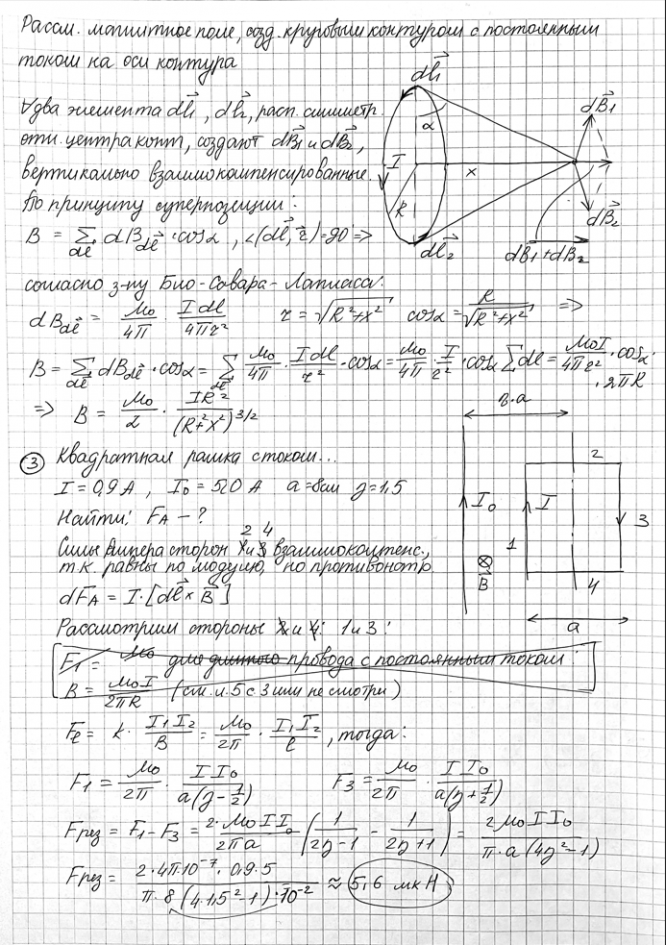 Рассм. магнитное поле, созд. круговым контуром с постоянным
током на оси контура
∀два элемента dl⃗₁, dl⃗₂, расп. симметр.
отн. центра конт, создают dB⃗₁ и dB⃗₂,
вертикально взаимокомпенсированные.
По принципу суперпозиции:
B = Σ_dl⃗ dB_dl⃗ · cosα, ∠(dl⃗, r⃗)=90 =>
dl⃗₁
α
I
R
x
dl⃗₂
dB⃗₁
dB⃗₂
dB⃗₁+dB⃗₂
согласно з-ну Био-Савара-Лапласа:
dB_dl⃗ = μ₀/4π · Idl/4πr² r = √(R²+x²) cosα = R/√(R²+x²) =>
B = Σ_dl⃗ dB_dl⃗ · cosα = Σ_dl⃗ μ₀/4π · Idl/r² · cosα = μ₀/4π · I/r² · cosα Σdl = μ₀I/4πr² · cosα ·
· 2πR
=> B = μ₀/2 · IR²/(R²+x²)^3/2
③ Квадратная рамка с током...
I = 0,9 А, I₀ = 5,0 А a = 8см η = 1,5
Найти: F_A - ?
2 4
Силы Ампера сторон и взаимокомпенс.,
т.к. равны по модулю, но противонапр.
dF⃗_A = I·[dl⃗ × B⃗]
η·a
I₀
I
1
2
3
4
⊗
B⃗
a
Рассмотрим стороны 1 и 3:
F₁ = μ₀ для длинного провода с постоянным током:
B = μ₀I/2πR (см. л.5 с 3 или не смотри)
F_ℓ = k · I₁I₂/B = μ₀/2π · I₁I₂/ℓ, тогда:
F₁ = μ₀/2π · II₀/a(η-½) F₃ = μ₀/2π · II₀/a(η+½)
Fрез = F₁-F₃ = 2·μ₀II₀/2πa (1/(2η-1) - 1/(2η+1)) = 2μ₀II₀/π·a(4η²-1)
Fрез = 2·4π·10⁻⁷·0,9·5/π·8(4·1,5²-1)·10⁻² ≈ 5,6 мкН